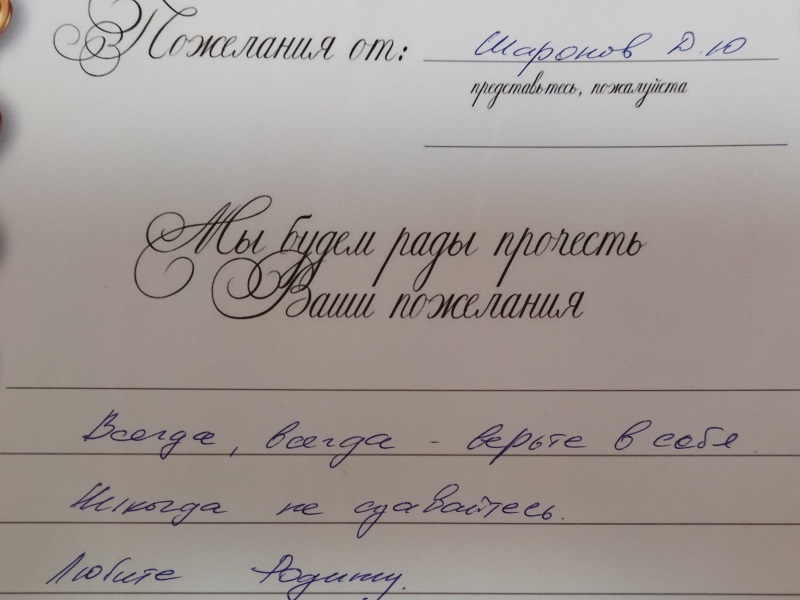 Пожелания от: Шаронов Д.Ю
представьтесь, пожалуйста
Мы будем рады прочесть
Ваши пожелания
Всегда, всегда - верьте в себя.
Никогда не сдавайтесь.
Любите Родину.